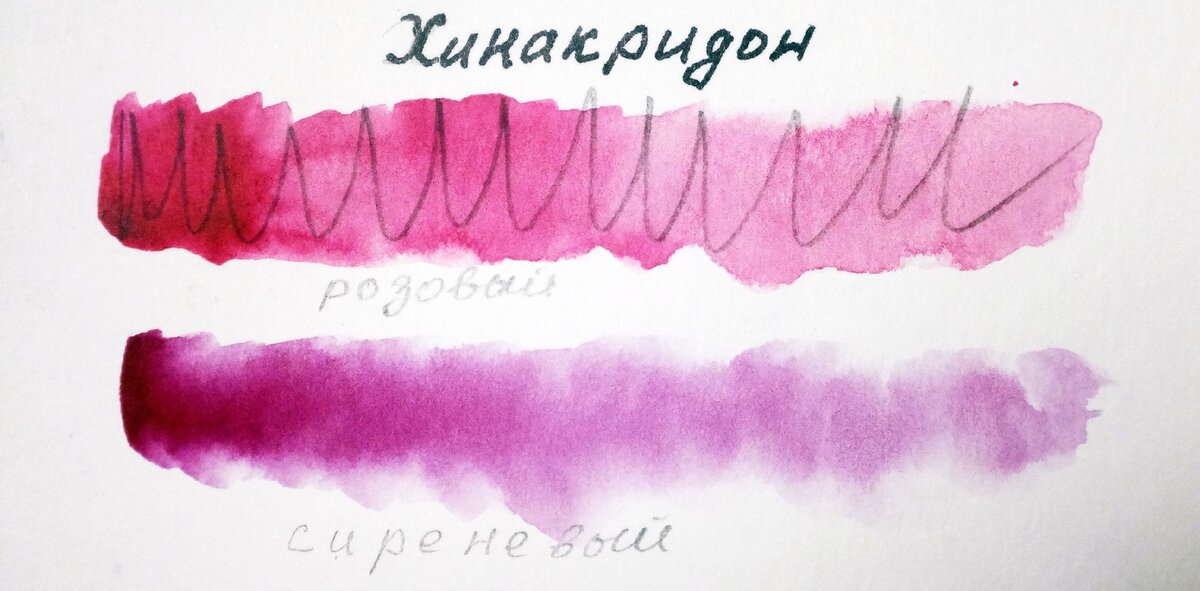 Хинакридон
розовый
сиреневый